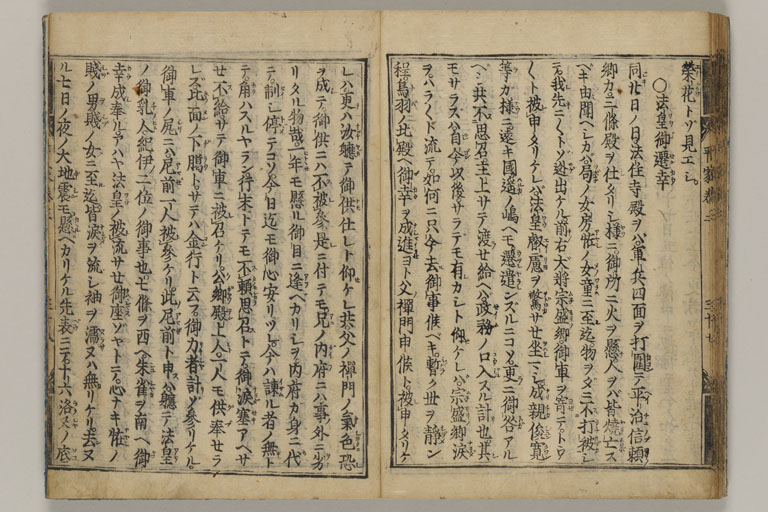 栄花トゾ見エシ
○法皇御遷幸
同廿日ノ日法住寺殿ヲバ軍兵四面ヲ打圍テ平治信頼
卿カ三條殿ヲ仕タリシ様ニ御所ニ火ヲ懸人ヲバ皆焼亡ス
ベキ由聞ヘシカバ局ノ女房怪ノ女童ニ至迄物ヲダニ不打被シ
テ我先ニ〱ト迯出ケル前右大将宗盛卿御車ヲ寄テトウ
〱ト被申タリケレバ法皇叡慮ヲ驚サセ坐々シ成親俊寛
等カ様ニ遠キ國遥ノ嶋ヘモ遷遣ンスルニコソ更ニ御咎アル
ベシ共不思召主上サテ渡セ給ヘバ政務ノ口入スル計也其
モサラズハ自今以後サラデモ有カシト仰ケレバ宗盛卿涙
ヲハラ〱ト流テ如何ニ只今去御事候ベキ暫ク世ヲ静ン
程鳥羽ノ北殿ヘ御幸ヲ成進ヨト父禪門申候ト被申タリケ
レバ更バ汝軈テ御供仕レト仰ケレ共父ノ禪門ノ氣色恐
ヲ成テ御供ニハ不被参是ニ付テモ兄ノ内府ニハ事外ニ劣
リタル物哉一年モ懸ル御目ニ逢ベカリシヲ内府カ身ニ代
テ訓シ停テコソ今日迄モ御心安リツレ今ハ諌ル者ノ無ト
テ角ハスルヤラン行末トテモ不頼思召トテ御涙塞アヘサ
セ不給サテ御車ニ被召ケリ公卿殿上人一人モ供奉セラ
レズ北面ノ下臈トサテハ金行ト云フ御力者計ゾ参リケル
御車ノ尻ニハ尼前一人被参ケリ此尼前ト申ハ軈テ法皇
ノ御乳人紀伊二位ノ御事也七條ヲ西ヘ朱雀ヲ南ヘ御
幸成奉ルアハヤ法皇ノ被流サセ御座ゾヤトテ心ナキ怪ノ
賎ノ男賎ノ女ニ至迄皆涙ヲ流シ袖ヲ濡ヌハ無リケリ去ヌ
ル七日ノ夜ノ大地震モ懸ベカリケル先表ニテ十六洛叉ノ底